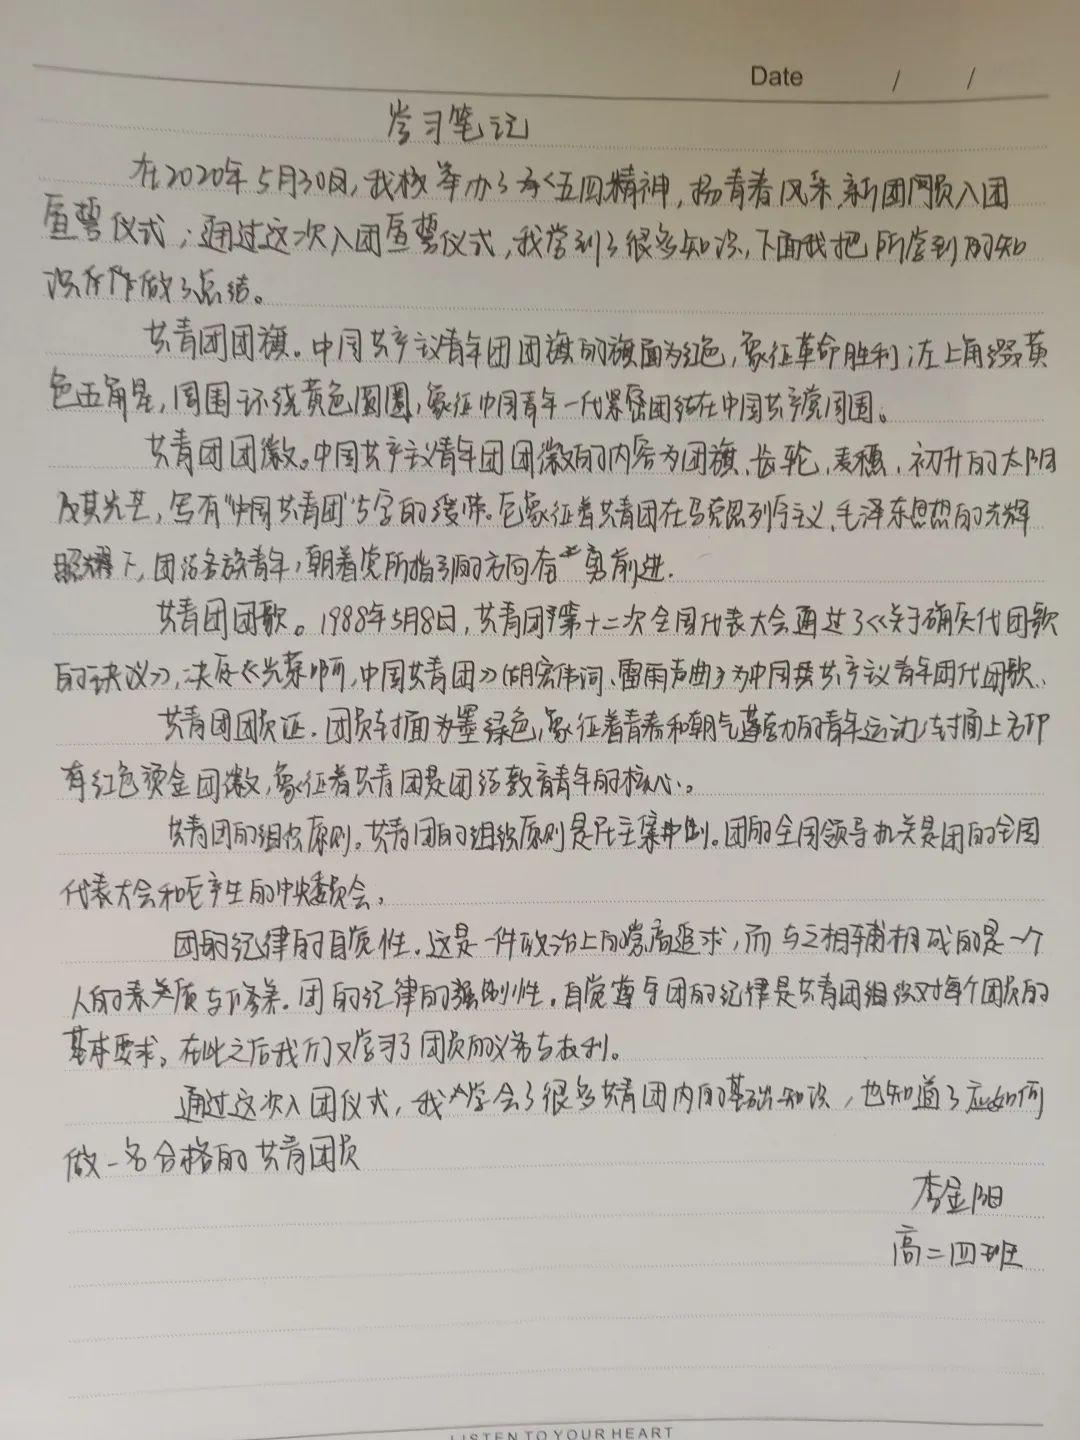 Date / /
学习笔记
在2020年5月30日,我校举办了承《五四精神,扬青春风采,新团员入团
宣誓仪式;通过这次入团宣誓仪式,我学到了很多知识,下面我把所学到的知
识作做了总结。
共青团团旗。中国共产主义青年团团旗的旗面为红色,象征革命胜利;左上角缀黄
色五角星,周围环绕黄色圆圈,象征中国青年一代紧密团结在中国共产党周围。
共青团团徽。中国共产主义青年团团徽的内容为团旗、齿轮、麦穗、初升的太阳
及其光芒,写有“中国共青团”5字的绶带。它象征着共青团在马克思列宁主义、毛泽东思想的光辉
照耀下,团结各族青年,朝着党所指引的方向奋勇前进.
共青团团歌。1988年5月8日,共青团第十二次全国代表大会通过了《关于确定代团歌
的决议》,决定《光荣啊,中国共青团》(胡宏伟词、雷雨声曲)为中国共产主义青年团代团歌.
共青团团员证.团员封面为墨绿色,象征着青春和朝气蓬勃的青年运动;封面上方印
有红色烫金团徽,象征着共青团是团结教育青年的核心。
共青团的组织原则。共青团的组织原则是民主集中制。团的全国领导机关是团的全国
代表大会和它产生的中央委员会.
团的纪律的自觉性.这是一件政治上的崇高追求,而与之相辅相成的是一个
人的素质与修养.团的纪律的强制性.自觉遵守团的纪律是共青团组织对每个团员的
基本要求,在此之后我们又学习了团员的义务与权利。
通过这次入团仪式,我学会了很多共青团内的基础知识,也知道了应如何
做一名合格的共青团员
李金阳
高二四班
LISTEN TO YOUR HEART